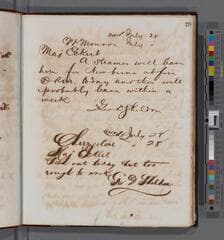 29
July 28
Ft Monroe July
Maj Eckert
A Steamer will leave
here for Newberne at five
P.M. today another will
probably leave within a
week
Geo D Sheldon
July 28
28
Maj Eckert
out today but too
rough to work
Geo D Sheldon